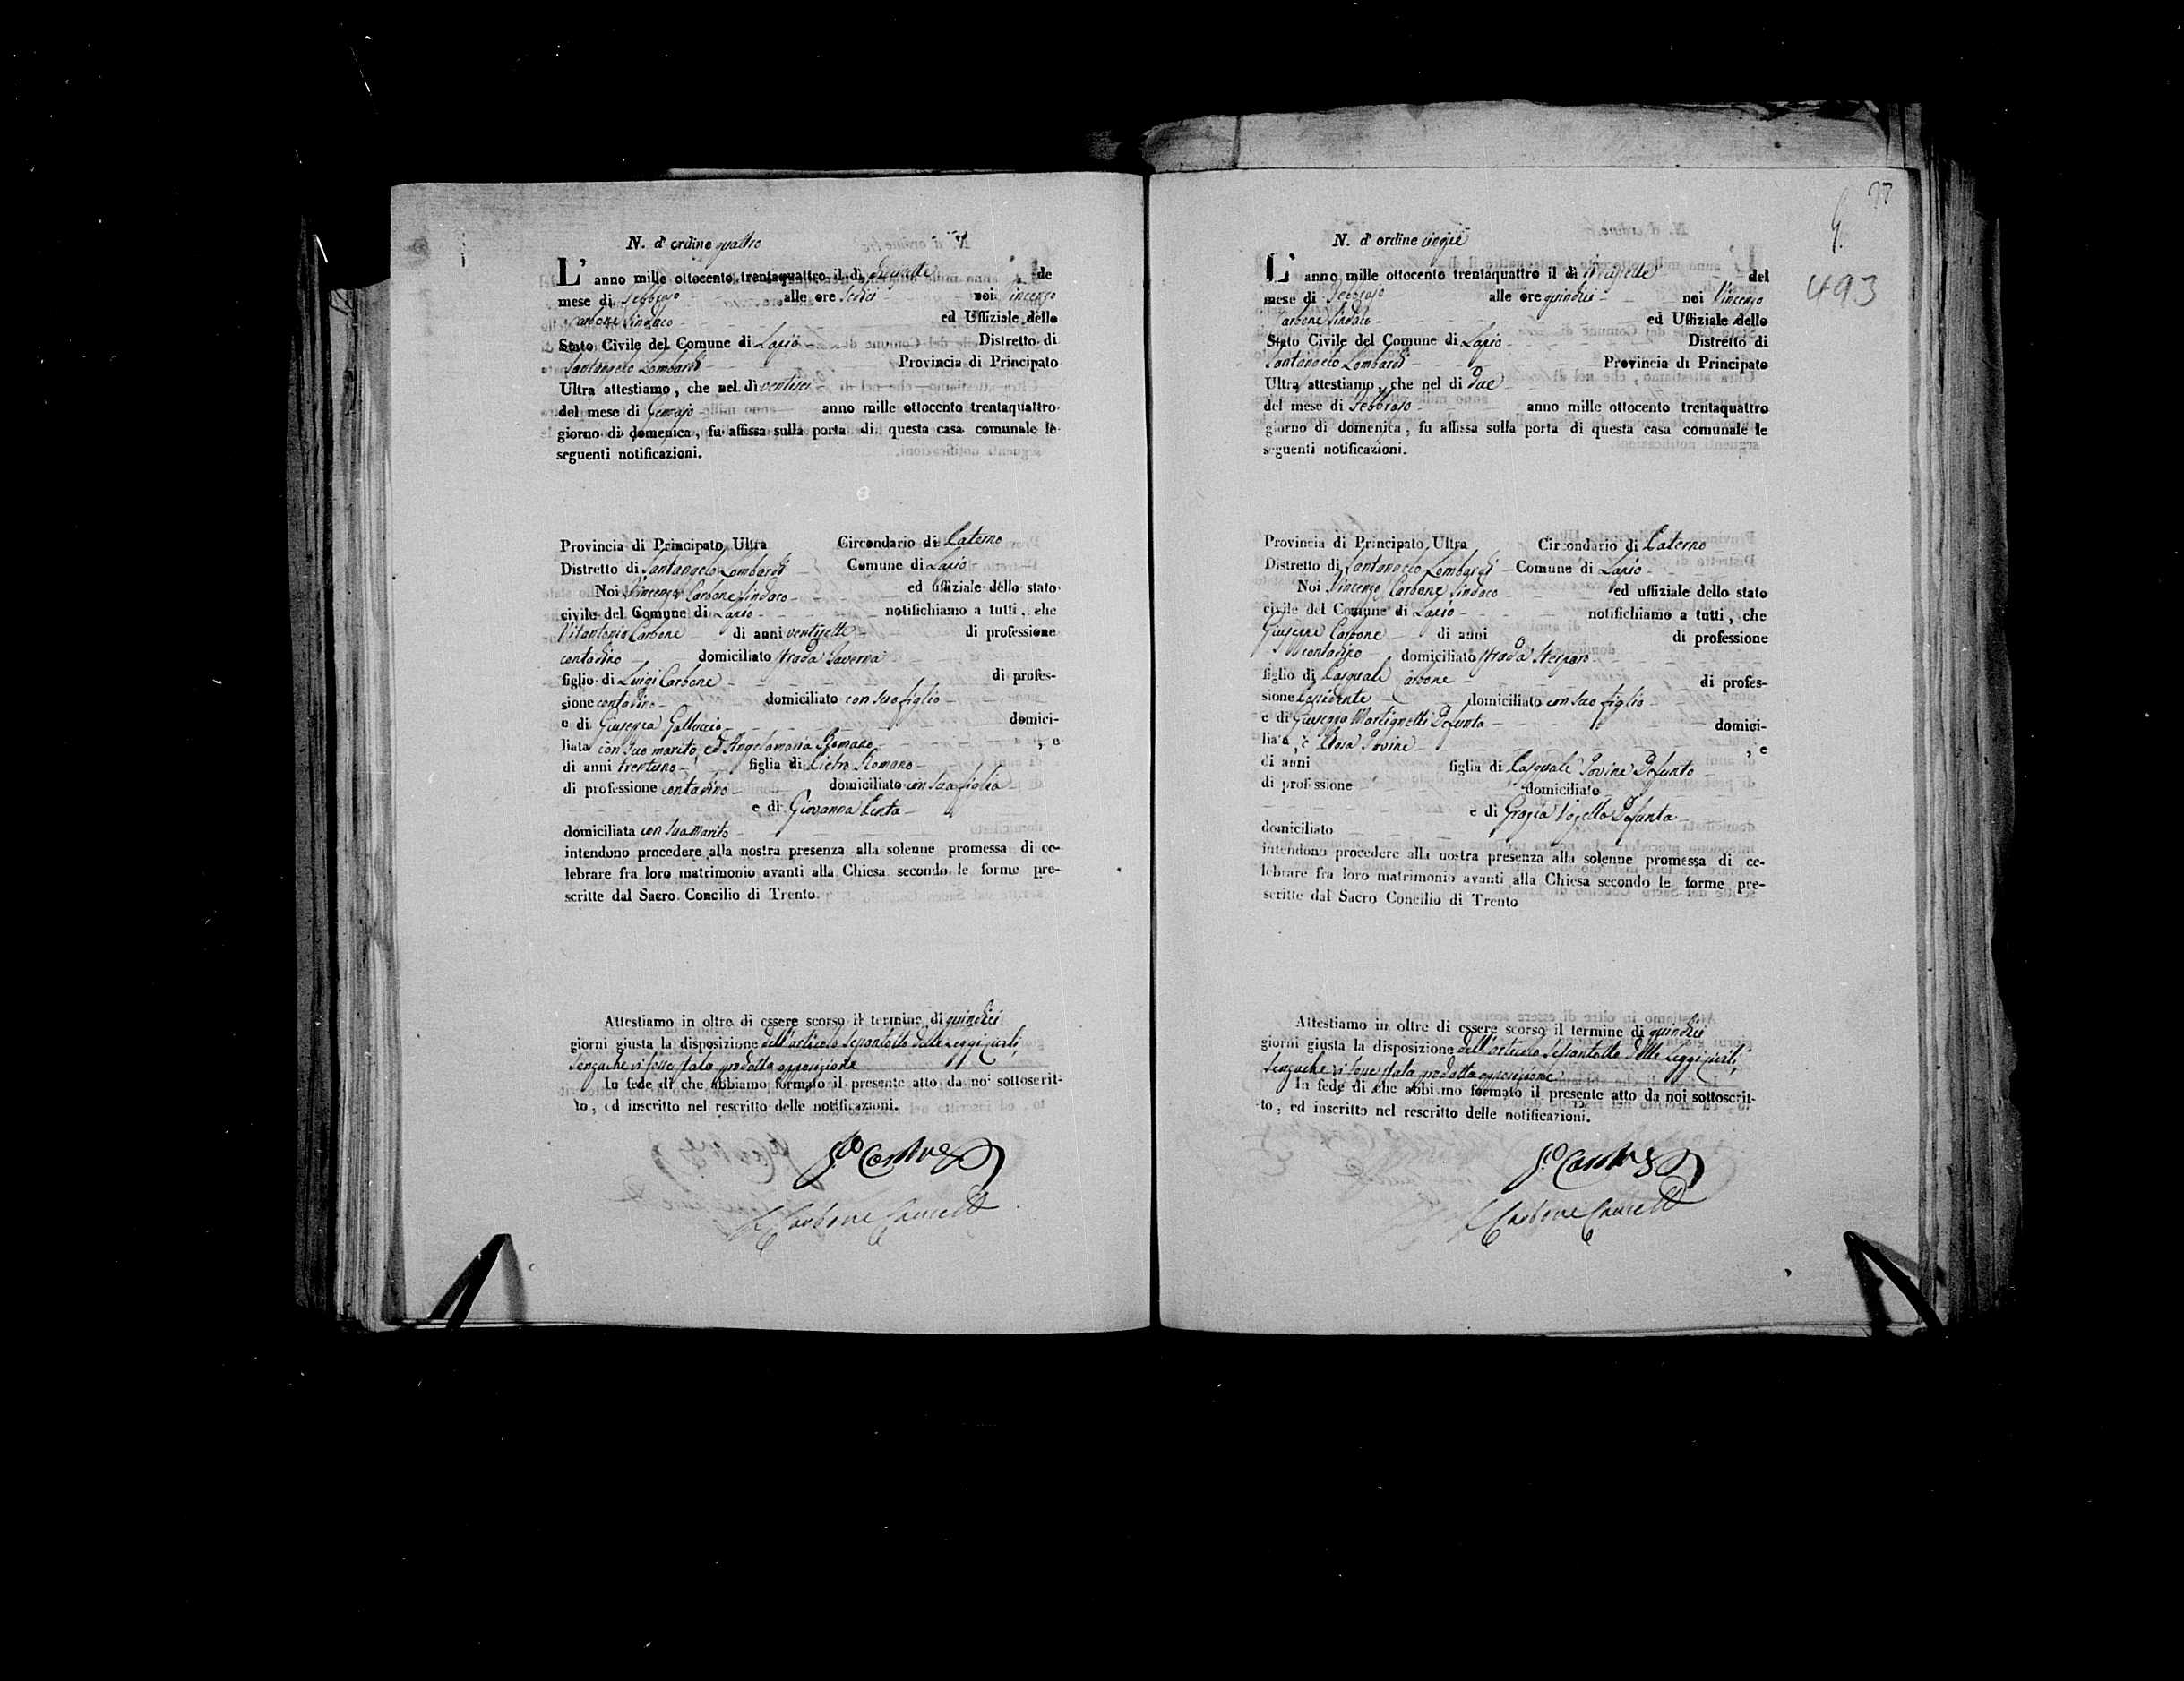 N. d' ordine quattro
L' anno mille ottocento trentaquattro il dì diecisette de
mese di Febbrajo alle ore sedici noi Vincenzo
Carbone Sindaco ed Uffiziale dello
Stato Civile del Comune di Lapio Distretto di
Santangelo Lombardi Provincia di Principato
Ultra attestiamo, che nel dì ventisei
del mese di Gennajo anno mille ottocento trentaquattro
giorno di domenica, fu affissa sulla porta di questa casa comunale le
seguenti notificazioni.
Provincia di Principato Ultra Circondario di Paterno
Distretto di Santangelo Lombardi Comune di Lapio
Noi Vincenzo Carbone Sindaco ed uffiziale dello stato
civile del Comune di Lapio notifichiamo a tutti, che
Vitantonio Carbone di anni ventisette di professione
contadino domiciliato strada Taverna
figlio di Luigi Carbone di profes-
sione contadino domiciliato con suo figlio
e di Giuseppa Galluccio domici-
liata con suo marito, ed Angelamaria Romano , e
di anni trentuno figlia di Pietro Romano
di professione contadino domiciliato con sua figlia
e di Giovanna Penta
domiciliata con suo marito
intendono procedere alla nostra presenza alla solenne promessa di ce-
lebrare fra loro matrimonio avanti alla Chiesa secondo le forme pre-
scritte dal Sacro Concilio di Trento.
Attestiamo in oltre di essere scorso il termine di quindici
giorni giusta la disposizione dell'articolo sessantotto delle Leggi civili,
senza che vi fosse stata prodotta opposizione
In fede di che abbiamo formato il presente atto da noi sottoscrit-
to, ed inscritto nel rescritto delle notificazioni.
Carbone
Carbone
77
493
N. d' ordine cinque
L' anno mille ottocento trentaquattro il dì del
mese di Febbrajo alle ore quindici noi Vincenzo
Carbone Sindaco ed Uffiziale dello
Stato Civile del Comune di Lapio Distretto di
Santangelo Lombardi Provincia di Principato
Ultra attestiamo, che nel dì due
del mese di Febbrajo anno mille ottocento trentaquattro
giorno di domenica, fu affissa sulla porta di questa casa comunale le
seguenti notificazioni.
Provincia di Principato Ultra Circondario di Paterno
Distretto di Santangelo Lombardi Comune di Lapio
Noi Vincenzo Carbone Sindaco ed uffiziale dello stato
civile del Comune di Lapio notifichiamo a tutti, che
Giuseppe Carbone di anni di professione
contadino domiciliato strada
figlio di Pasquale Carbone di profes-
sione Possidente domiciliato con suo figlio
e di Giuseppa Martignetti Defunta domici-
liata, e Rosa Iovine , e
di anni figlia di Pasquale Iovine Defunto
di professione domiciliato
e di Grazia Defunta
domiciliato
intendono procedere alla nostra presenza alla solenne promessa di ce-
lebrare fra loro matrimonio avanti alla Chiesa secondo le forme pre-
scritte dal Sacro Concilio di Trento
Attestiamo in oltre di essere scorso il termine di quindici
giorni giusta la disposizione dell'articolo sessantotto delle Leggi civili,
senza che vi fosse stata prodotta opposizione
In fede di che abbiamo formato il presente atto da noi sottoscrit-
to, ed inscritto nel rescritto delle notificazioni.
Carbone
Carbone